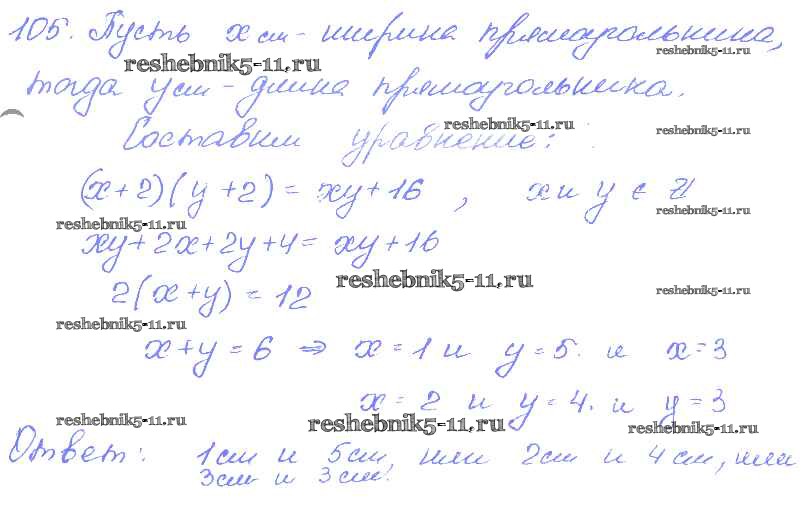 105. Пусть x см - ширина прямоугольника,
reshebnik5-11.ru
reshebnik5-11.ru
тогда y см - длина прямоугольника.
reshebnik5-11.ru
reshebnik5-11.ru
Составим уравнение:
(x+2)(y+2) = xy+16 , x и y ∈ Z
reshebnik5-11.ru
reshebnik5-11.ru
xy+2x+2y+4 = xy+16
reshebnik5-11.ru
2(x+y) = 12
reshebnik5-11.ru
reshebnik5-11.ru
x+y = 6 ⇒ x = 1 и y = 5. и x = 3
x = 2 и y = 4. и y = 3
reshebnik5-11.ru
reshebnik5-11.ru
reshebnik5-11.ru
Ответ: 1см и 5см, или 2см и 4см, или
3см и 3см.